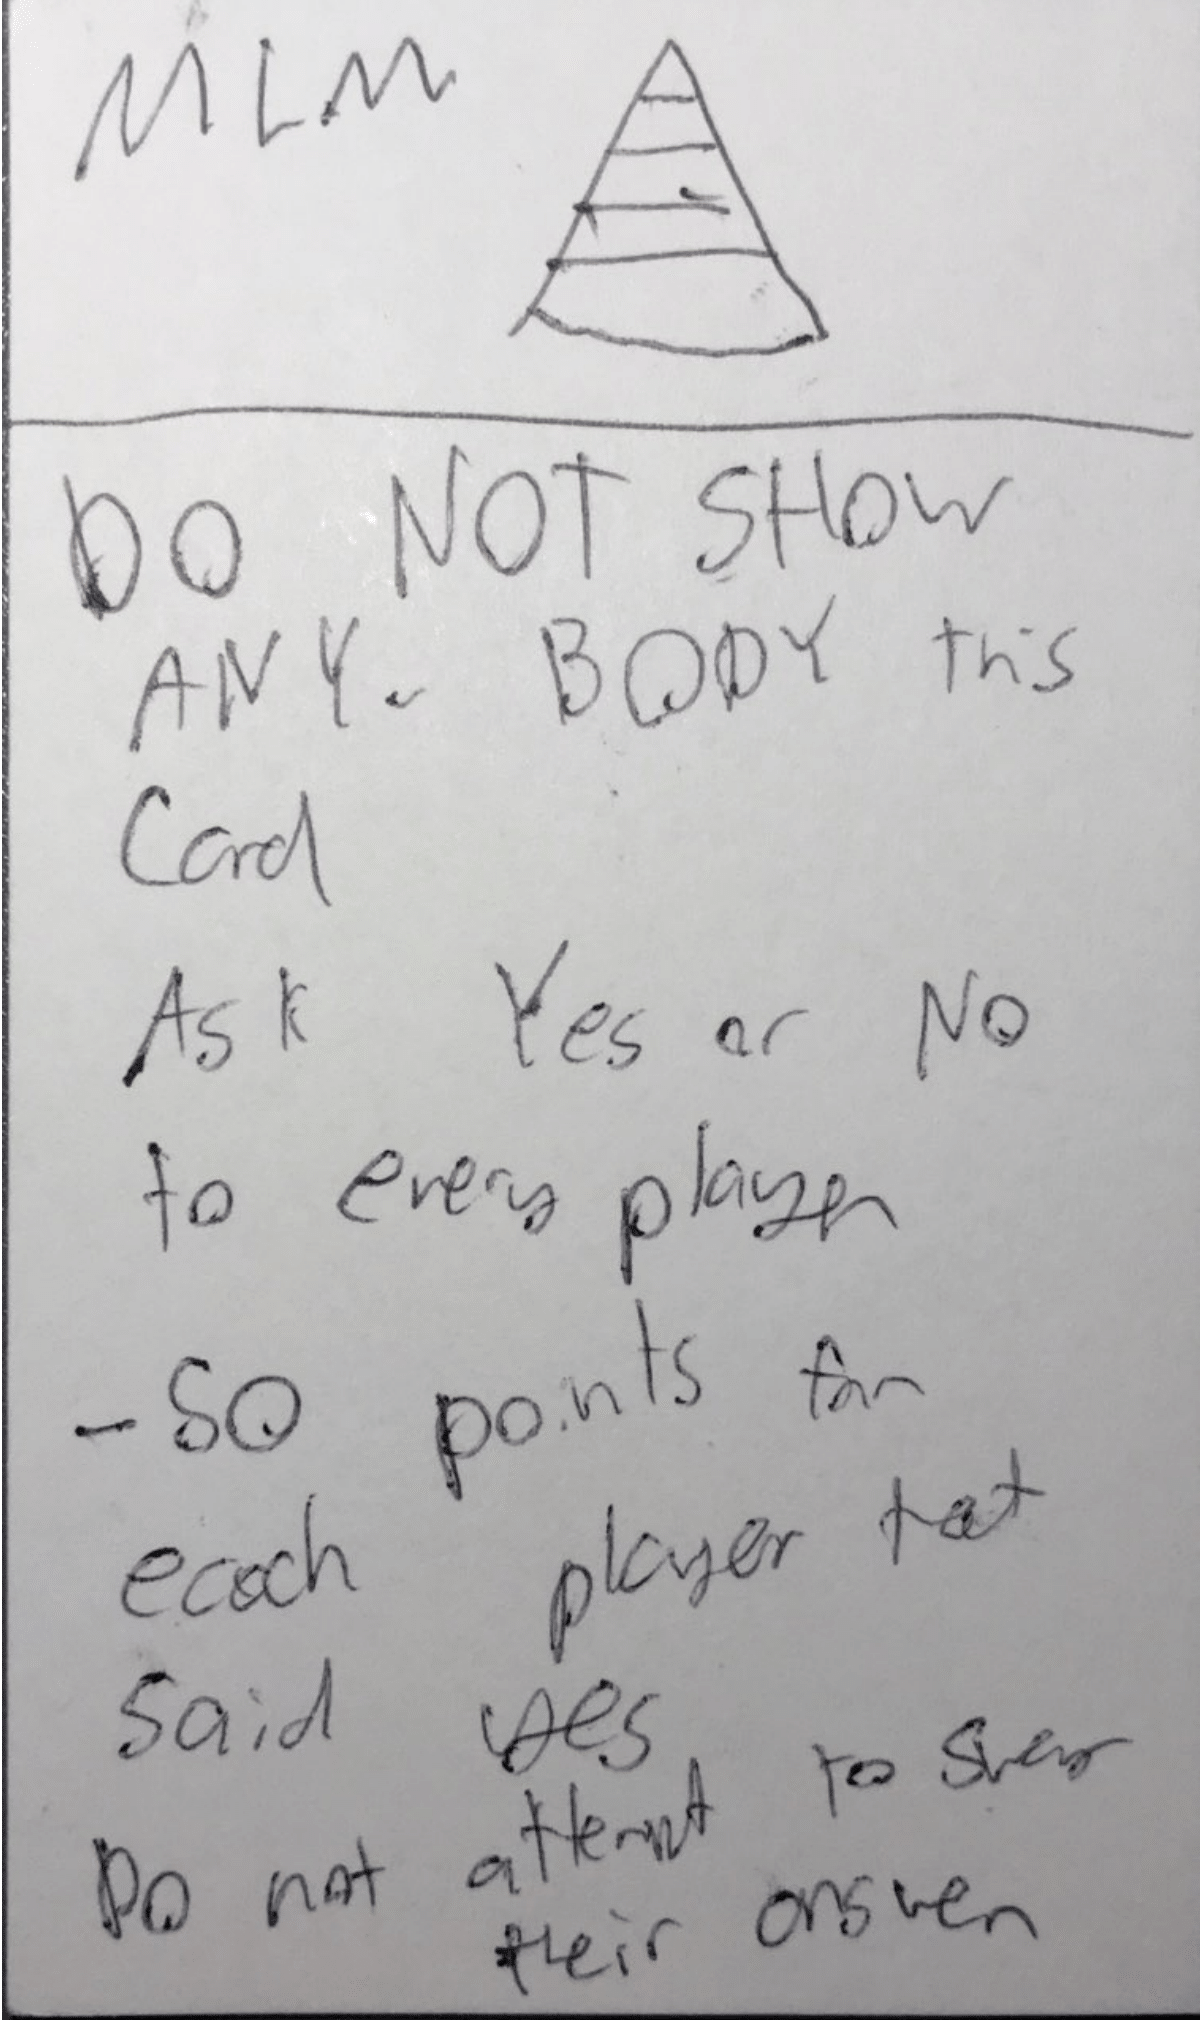 MLM
DO NOT SHOW
ANY- BODY this
Card
Ask Yes or No
to every player
-50 points for
each player that
said yes
Do not attempt to sway
their answer